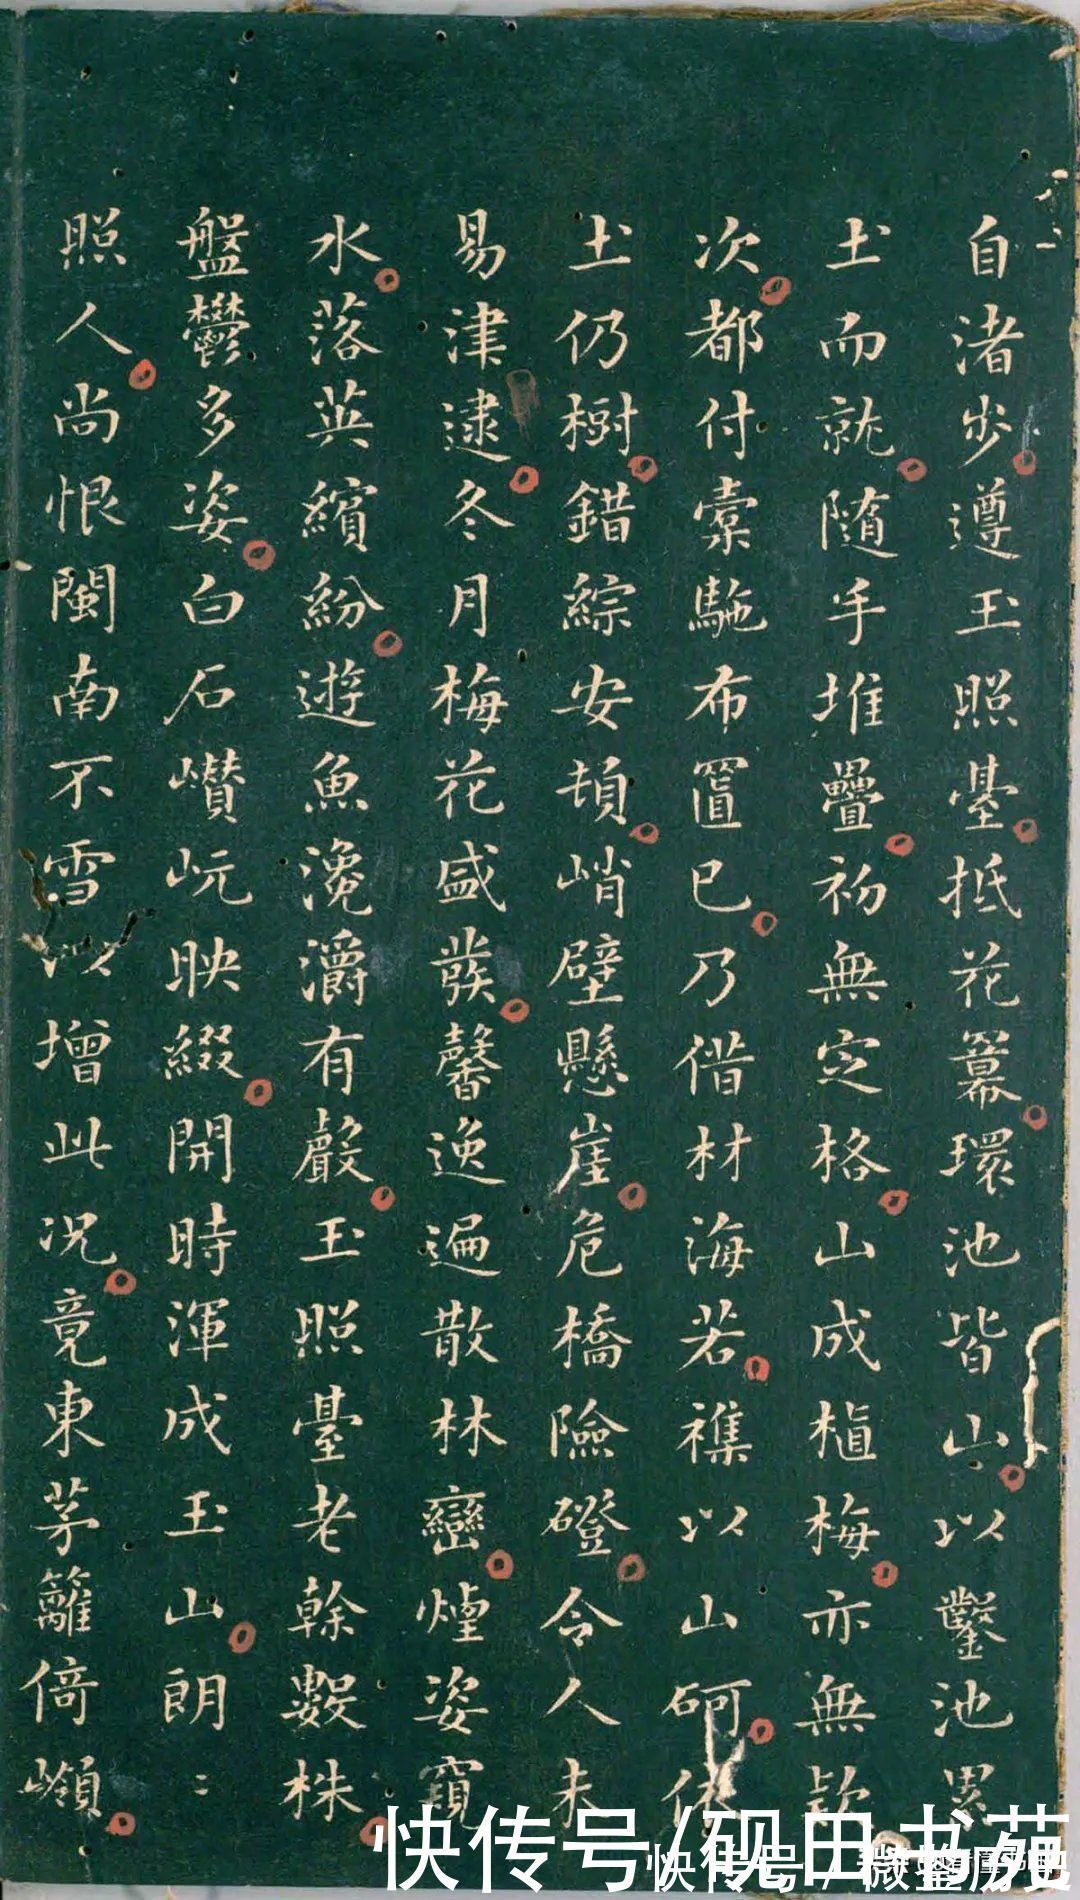 自渚步遵玉照臺抵花幕環池皆山以鑿池累
土而就隨手堆疊初無定格山成植梅亦無款
次都付橐駞布置已乃借材海若襍以山砢依
土仍樹錯綜安頓峭壁懸崖危橋險磴令人未
易津逮冬月梅花盛發馨逸遍散林巒煙姿窺
水落英繽紛遊魚瀺灂有聲玉照臺老榦數株
盤鬱多姿白石巑岏映綴開時渾成玉山朗〻
照人尚恨閩南不雪以增此況竟東茅籬倚嶺
快传号/砚田书苑